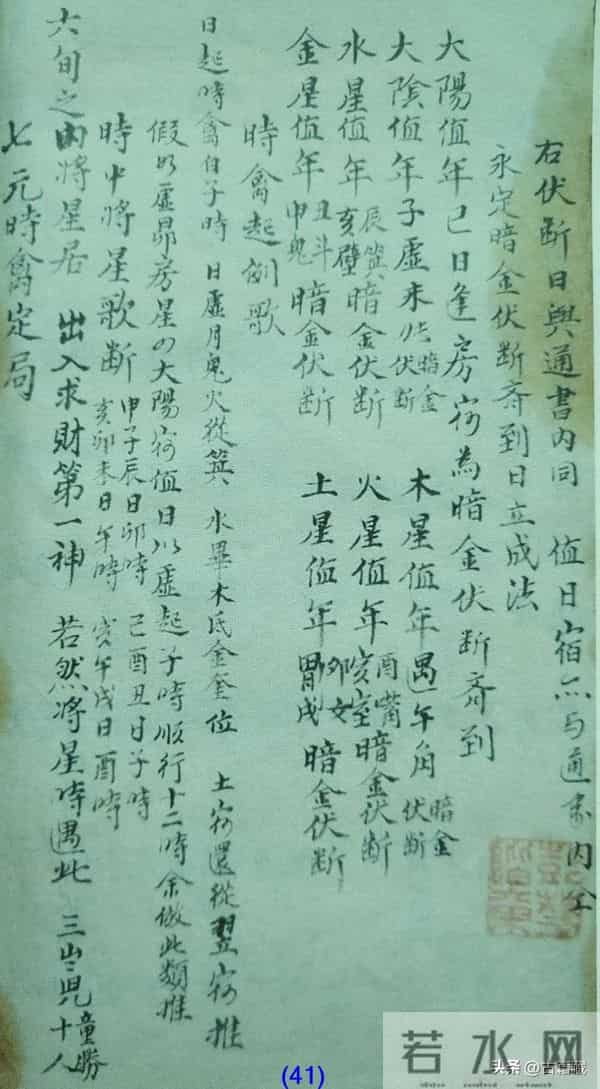 右伏断日與通書内同 值日宿亦与通书内仝
永定暗金伏断斉到日立成法
大陽值年 巳日逢房宿為暗金伏断斉到
大陰值年 子虚未张 暗金伏断 木星值年 遇午角 暗金伏断
水星值年 辰箕亥壁 暗金伏断 火星值年 酉嘴寅室 暗金伏断
金星值年 丑斗申鬼 暗金伏断 土星值年 卯女戌胃 暗金伏断
時禽起例歌
日起時禽自子時 日虚月鬼火從箕 水畢木氐金奎位 土宿還從翌宿推
假如虚昴房星の大陽宿值日以虚起子時順行十二時余倣此類推
時中將星歌断 申子辰日卯時 亥卯未日午時 巳酉丑日子時 寅午戌日酉時
六旬之内將星居 出入求財第一神 若然將星時遇此 三岁兒童勝十人
七元時禽定局
若水网
头条@古籍藏
(41)